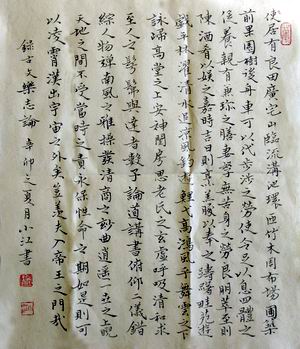 使居有良田廣宅山臨流溝池環匝竹木周布場圃築
前果園樹後舟車可以代步涉之勞使令足以息四體之
役養親有兼珍之膳妻孥無苦身之勞良朋萃至則
陳酒肴以娛之嘉時吉日則烹羔豚以奉之躊躇畦苑遊
戲平林濯清水追涼風釣游鯉弋高鴻風乎舞雩之下
詠歸高堂之上安神閨房思老氏之玄虛呼吸清和求
至人之髣髴與達者數子論道講書俯仰二儀錯
綜人物彈南風之雅操發清商之妙曲逍遙一世之上睨
天地之間不受當時之責永保性命之期如是則可
以凌霄漢出宇宙之外矣豈羨夫入帝王之門哉
錄古文樂志論辛卯之夏月小江書